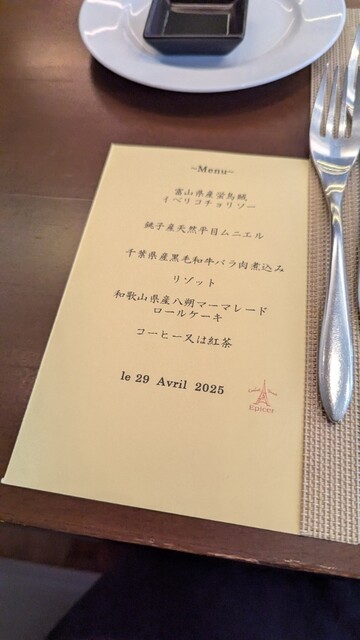 ~Menu~
富山県産蛍烏賊
イベリコチョリソー
銚子産天然平目ムニエル
千葉県産黒毛和牛バラ肉煮込み
リゾット
和歌山県産八朔マーマレード
ロールケーキ
コーヒー又は紅茶
le 29 Avril 2025
Epicer